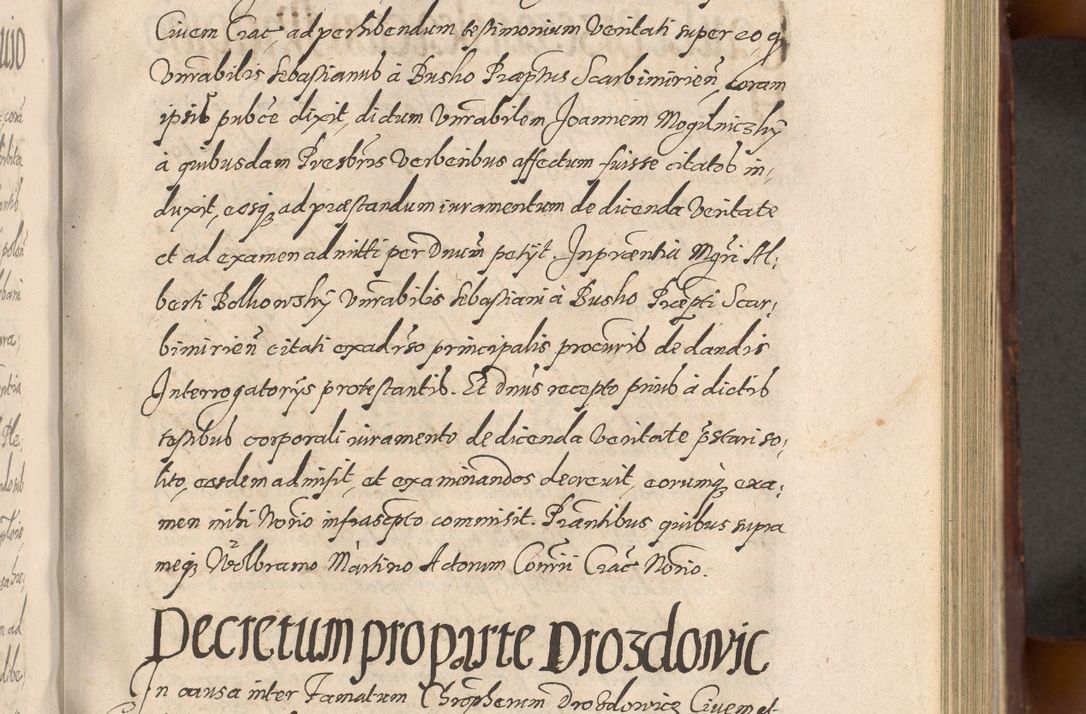 Ciuem Crac̃ ad perhibendum testimonium veritati super eo q̃
Vnrabilis Sebastianus à Busko Præptus Scarbimirieñ coram
ipsis pubce dixit, dictum Vnrabilem Joannem Mogilniczky
à quibusdam Presbris verberibus affectum fuisse citatos in,
duxit, eosq; ad præstandum iuramentum de dicenda veritate
et ad examen admitti per Dnum petijt. In præntia Mgri Al,
berti Bolkowsky Vnrabilis Sebastiani à Busko Præpti Scar,
bimirieñ citati ex adrso principalis procuris de dandis
Interrogatorijs protestantis. Et Dnus recepto prius à dictis
testibus corporali iuramento de dicenda veritate pstari so,
lito, eosdem admisit, et examinandos decreuit, eorumq; exa,
men mihi Norio infrascpto commisit. Præntibus quibus supra
meq; Wolbramo Martino Actorum Conrii Crac̃ Norio.
Decretum pro parte Drozdowic
In causa inter Famatum Chrõpherum Drozdowicz Ciuem et